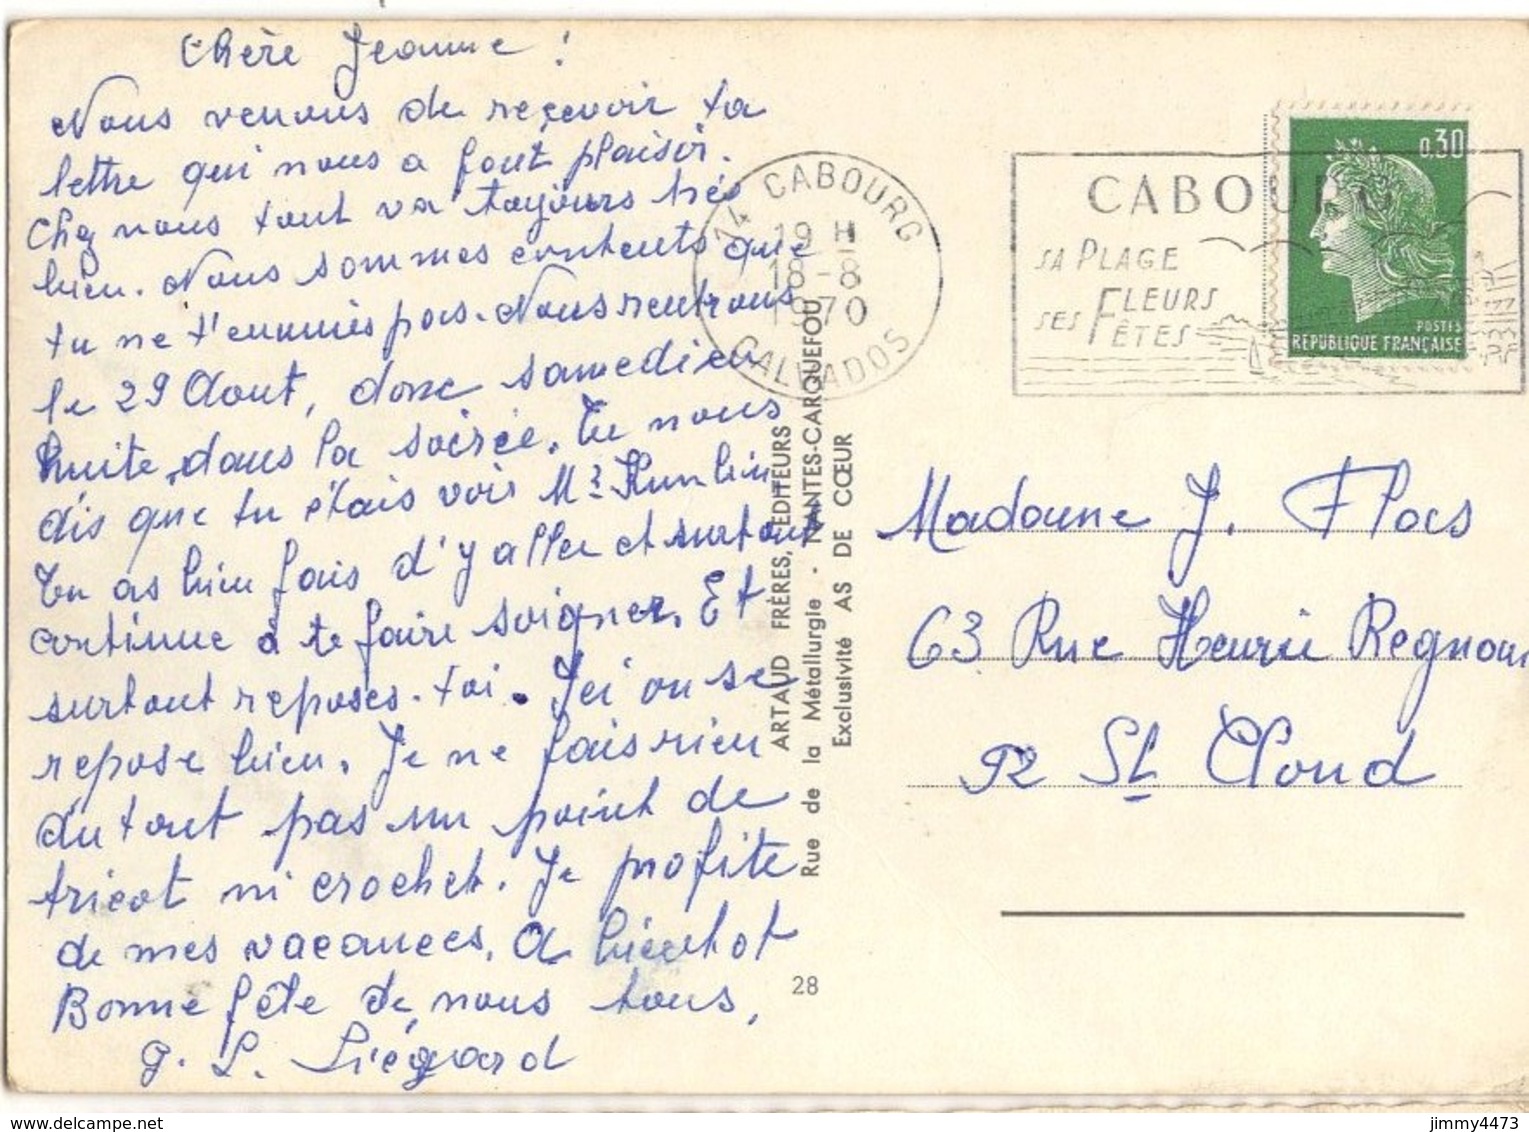 Chère Jeanne !
Nous venons de reçevoir ta
lettre qui nous a fait plaisir.
Chez nous tout va toujours très
bien. Nous sommes contents que
tu ne t'ennuies pas. Nous rentrons
le 29 Aout, donc samedi en
huite, dans la soirée. Tu nous
dis que tu étais voir Mr
Tu as bien fais d'y aller et surtout
continue à te faire soigner. Et
surtout reposes-toi. Ici on se
repose bien. Je ne fais rien
du tout pas un point de
tricot ni crochet. Je profite
de mes vacances. A bientot
Bonne fête de nous tous,
G. L. Liégard
14 CABOURG
19 H
18-8
1970
CALVADOS
CABOURG
SA PLAGE
SES FLEURS
FÊTES
0,30
POSTES
RÉPUBLIQUE FRANÇAISE
ARTAUD FRÈRES, ÉDITEURS
Rue de la Métallurgie - NANTES-CARQUEFOU
Exclusivité AS DE CŒUR
28
Madame J. Flocs
63 Rue Henrie Regnau
92 St Cloud
jimmy4473